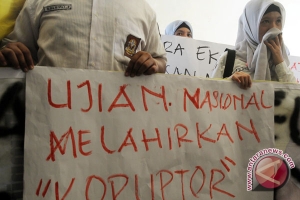 RA EK
UJIAN. NASIONAL
MELAHIRKAN
"KORUPTOR"
www.antaranews.com